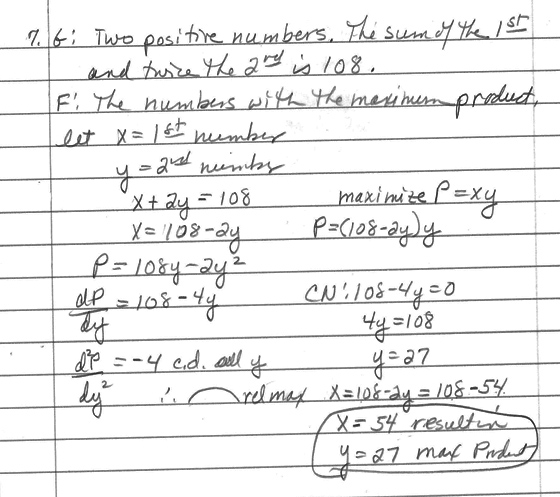 7. G: Two positive numbers. The sum of the 1st
and twice the 2nd is 108.
F: The numbers with the maximum product.
let x = 1st number
y = 2nd number
x + 2y = 108 maximize P = xy
x = 108 - 2y P = (108 - 2y)y
P = 108y - 2y²
dP/dy = 108 - 4y CN: 108 - 4y = 0
4y = 108
d²P/dy² = -4 c.d. all y y = 27
∴ ⌒ rel max x = 108 - 2y = 108 - 54
x = 54 result in
y = 27 max Product